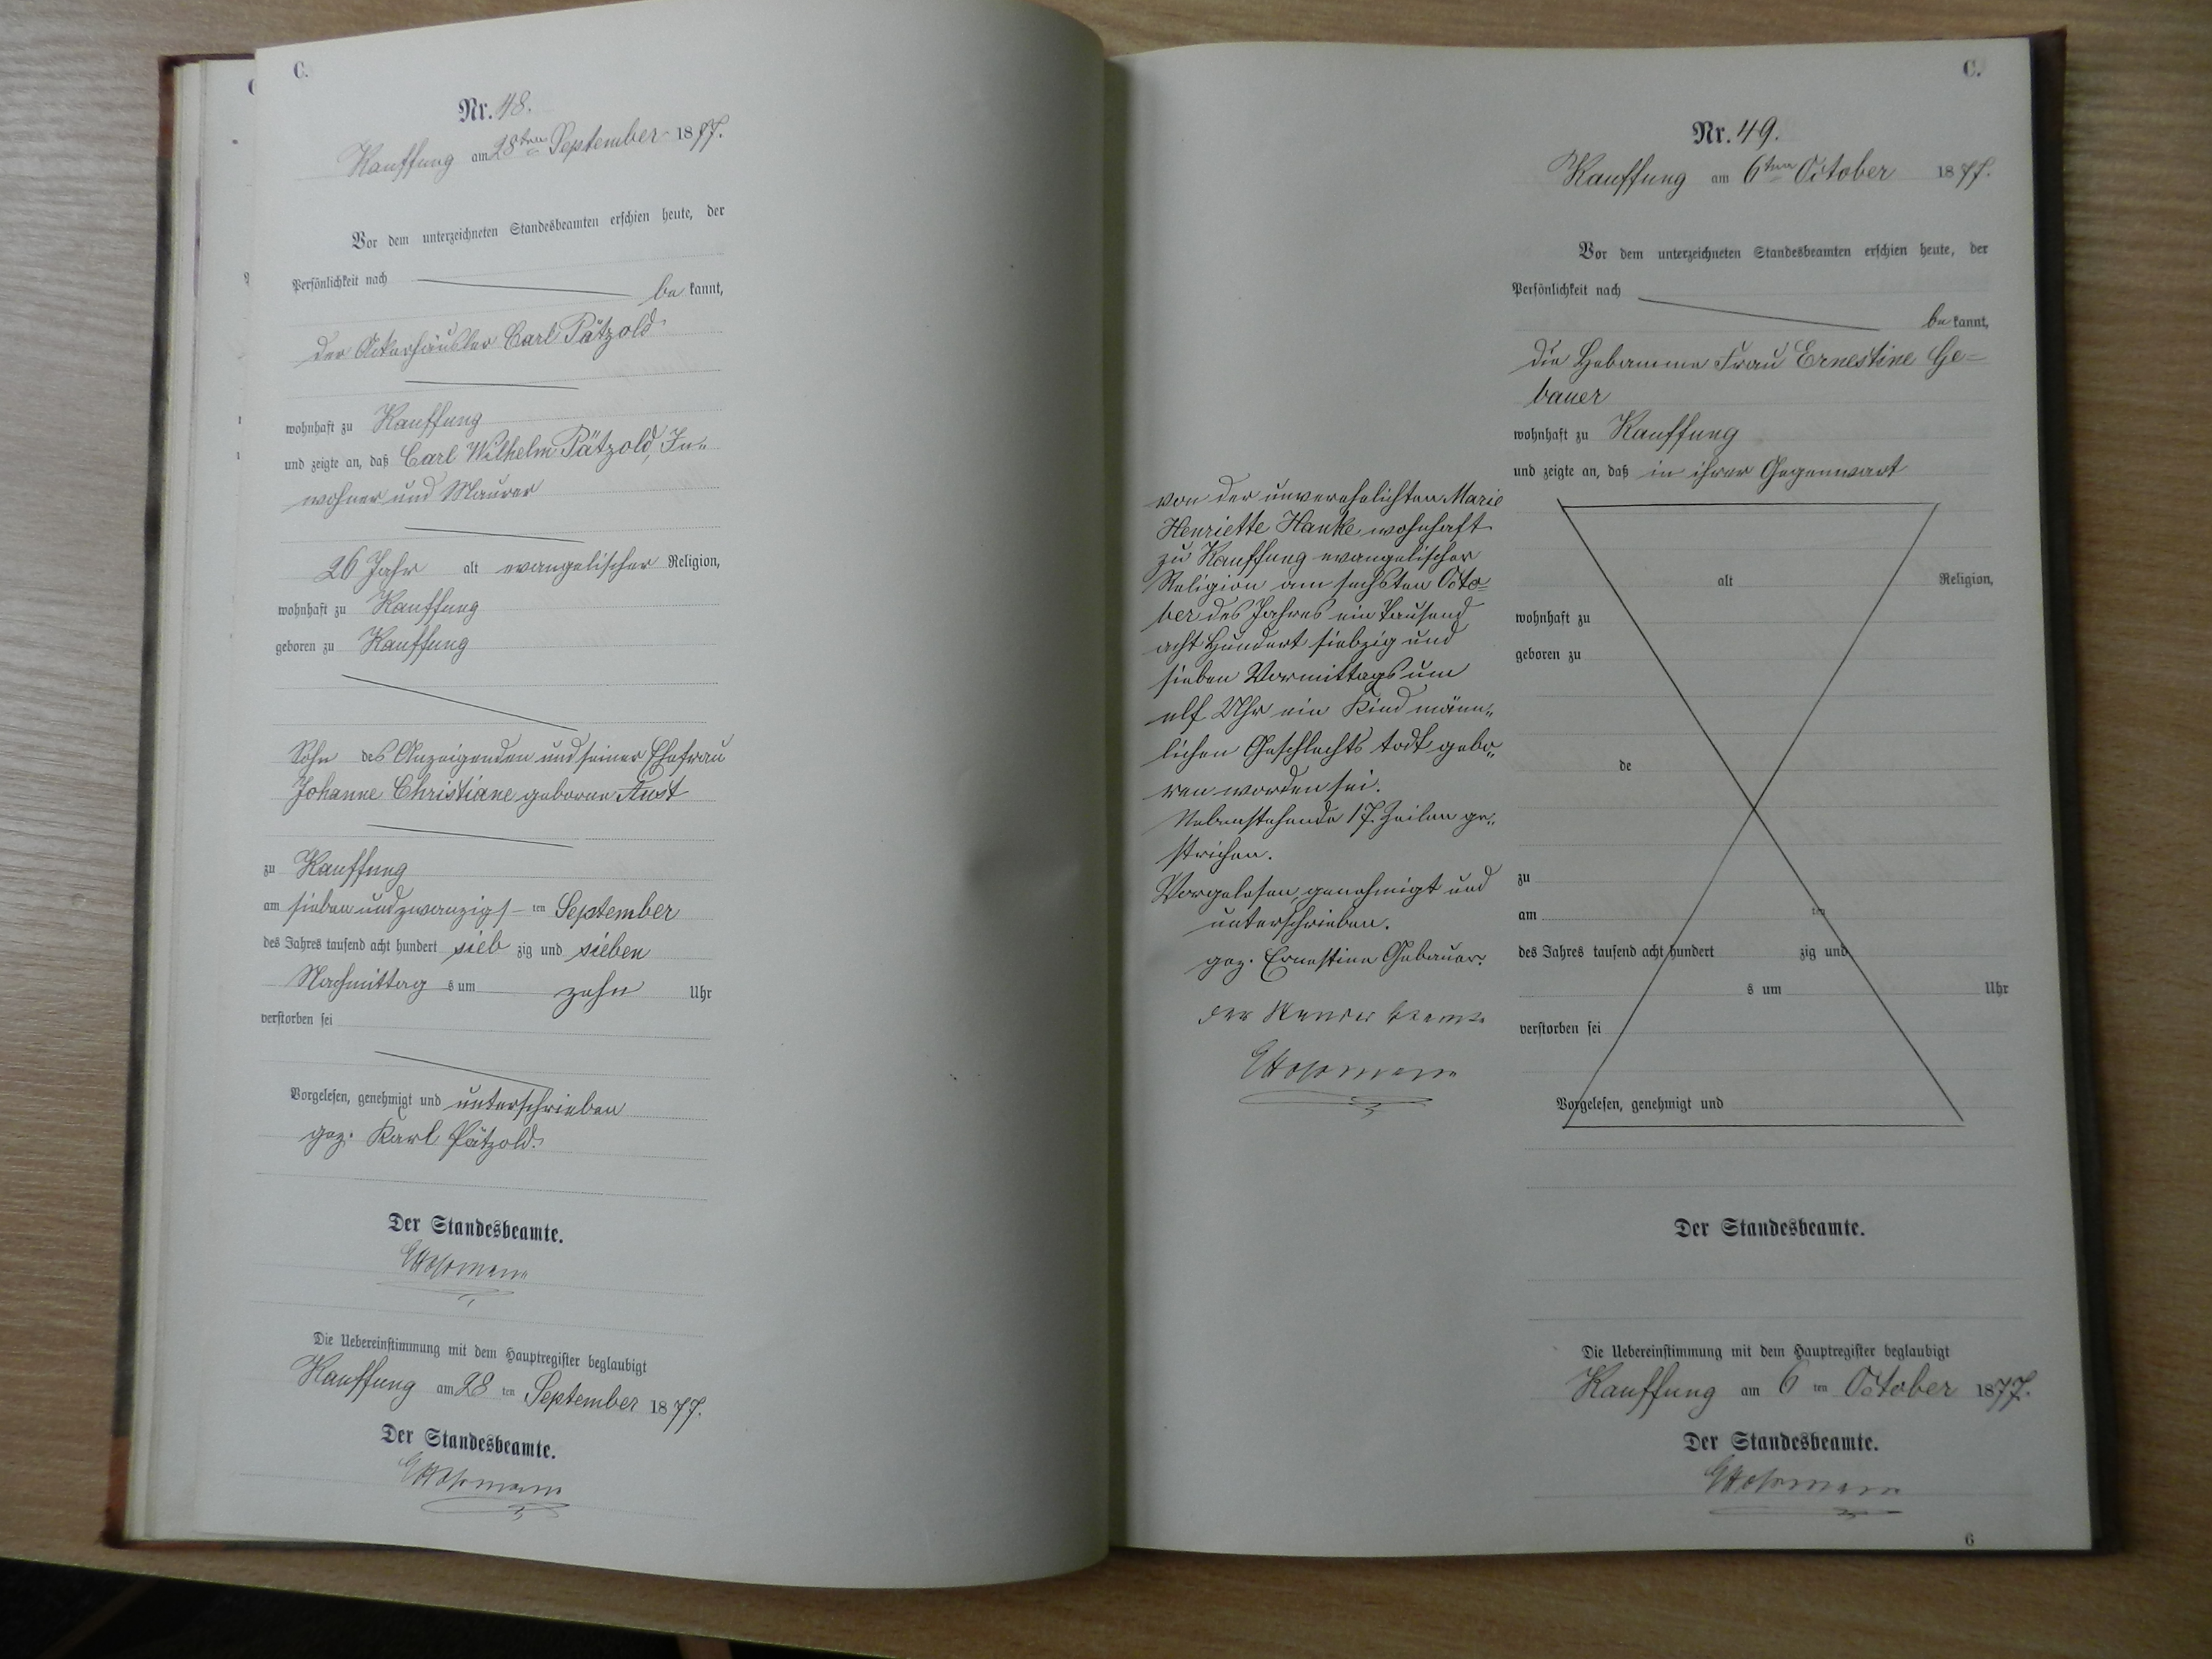 C.
Nr. 48.
Kauffung am 28ten September 1877.
Vor dem unterzeichneten Standesbeamten erschien heute, der
Persönlichkeit nach
be kannt,
der Ackerhäusler Carl Pätzold
wohnhaft zu Kauffung
und zeigte an, daß Carl Wilhelm Pätzold, In-
wohner und Maurer
26 Jahr alt evangelischer Religion,
wohnhaft zu Kauffung
geboren zu Kauffung
Sohn des Anzeigenden und seiner Ehefrau
Johanne Christiane geborne Aust
zu Kauffung
am sieben und zwanzigs-ten September
des Jahres tausend acht hundert sieb zig und sieben
Nachmittag s um zehn Uhr
verstorben sei
Vorgelesen, genehmigt und unterschrieben
gez. Karl Pätzold.
Der Standesbeamte.
Die Uebereinstimmung mit dem Hauptregister beglaubigt
Kauffung am 28 ten September 1877.
Der Standesbeamte.
C.
Nr. 49.
Kauffung am 6ten October 1877.
Vor dem unterzeichneten Standesbeamten erschien heute, der
Persönlichkeit nach
be kannt,
die Hebamme Frau Ernestine Ge-
bauer
wohnhaft zu Kauffung
und zeigte an, daß in ihrer Gegenwart
von der unverehelichten Marie
Henriette Hanke wohnhaft
zu Kauffung evangelischer
Religion am sechsten Octo-
ber des Jahres ein Tausend
acht Hundert siebzig und
sieben Vormittags um
elf Uhr ein Kind männ-
lichen Geschlechts todt gebo-
ren worden sei.
Nebenstehende 17. Zeilen ge-
strichen.
Vorgelesen, genehmigt und
unterschrieben.
gez. Ernestine Gebauer.
Der Standesbeamte
alt Religion,
wohnhaft zu
geboren zu
de
zu
am ten
des Jahres tausend acht hundert zig und
s um Uhr
verstorben sei
Vorgelesen, genehmigt und
Der Standesbeamte.
Die Uebereinstimmung mit dem Hauptregister beglaubigt
Kauffung am 6 ten October 1877.
Der Standesbeamte.
6